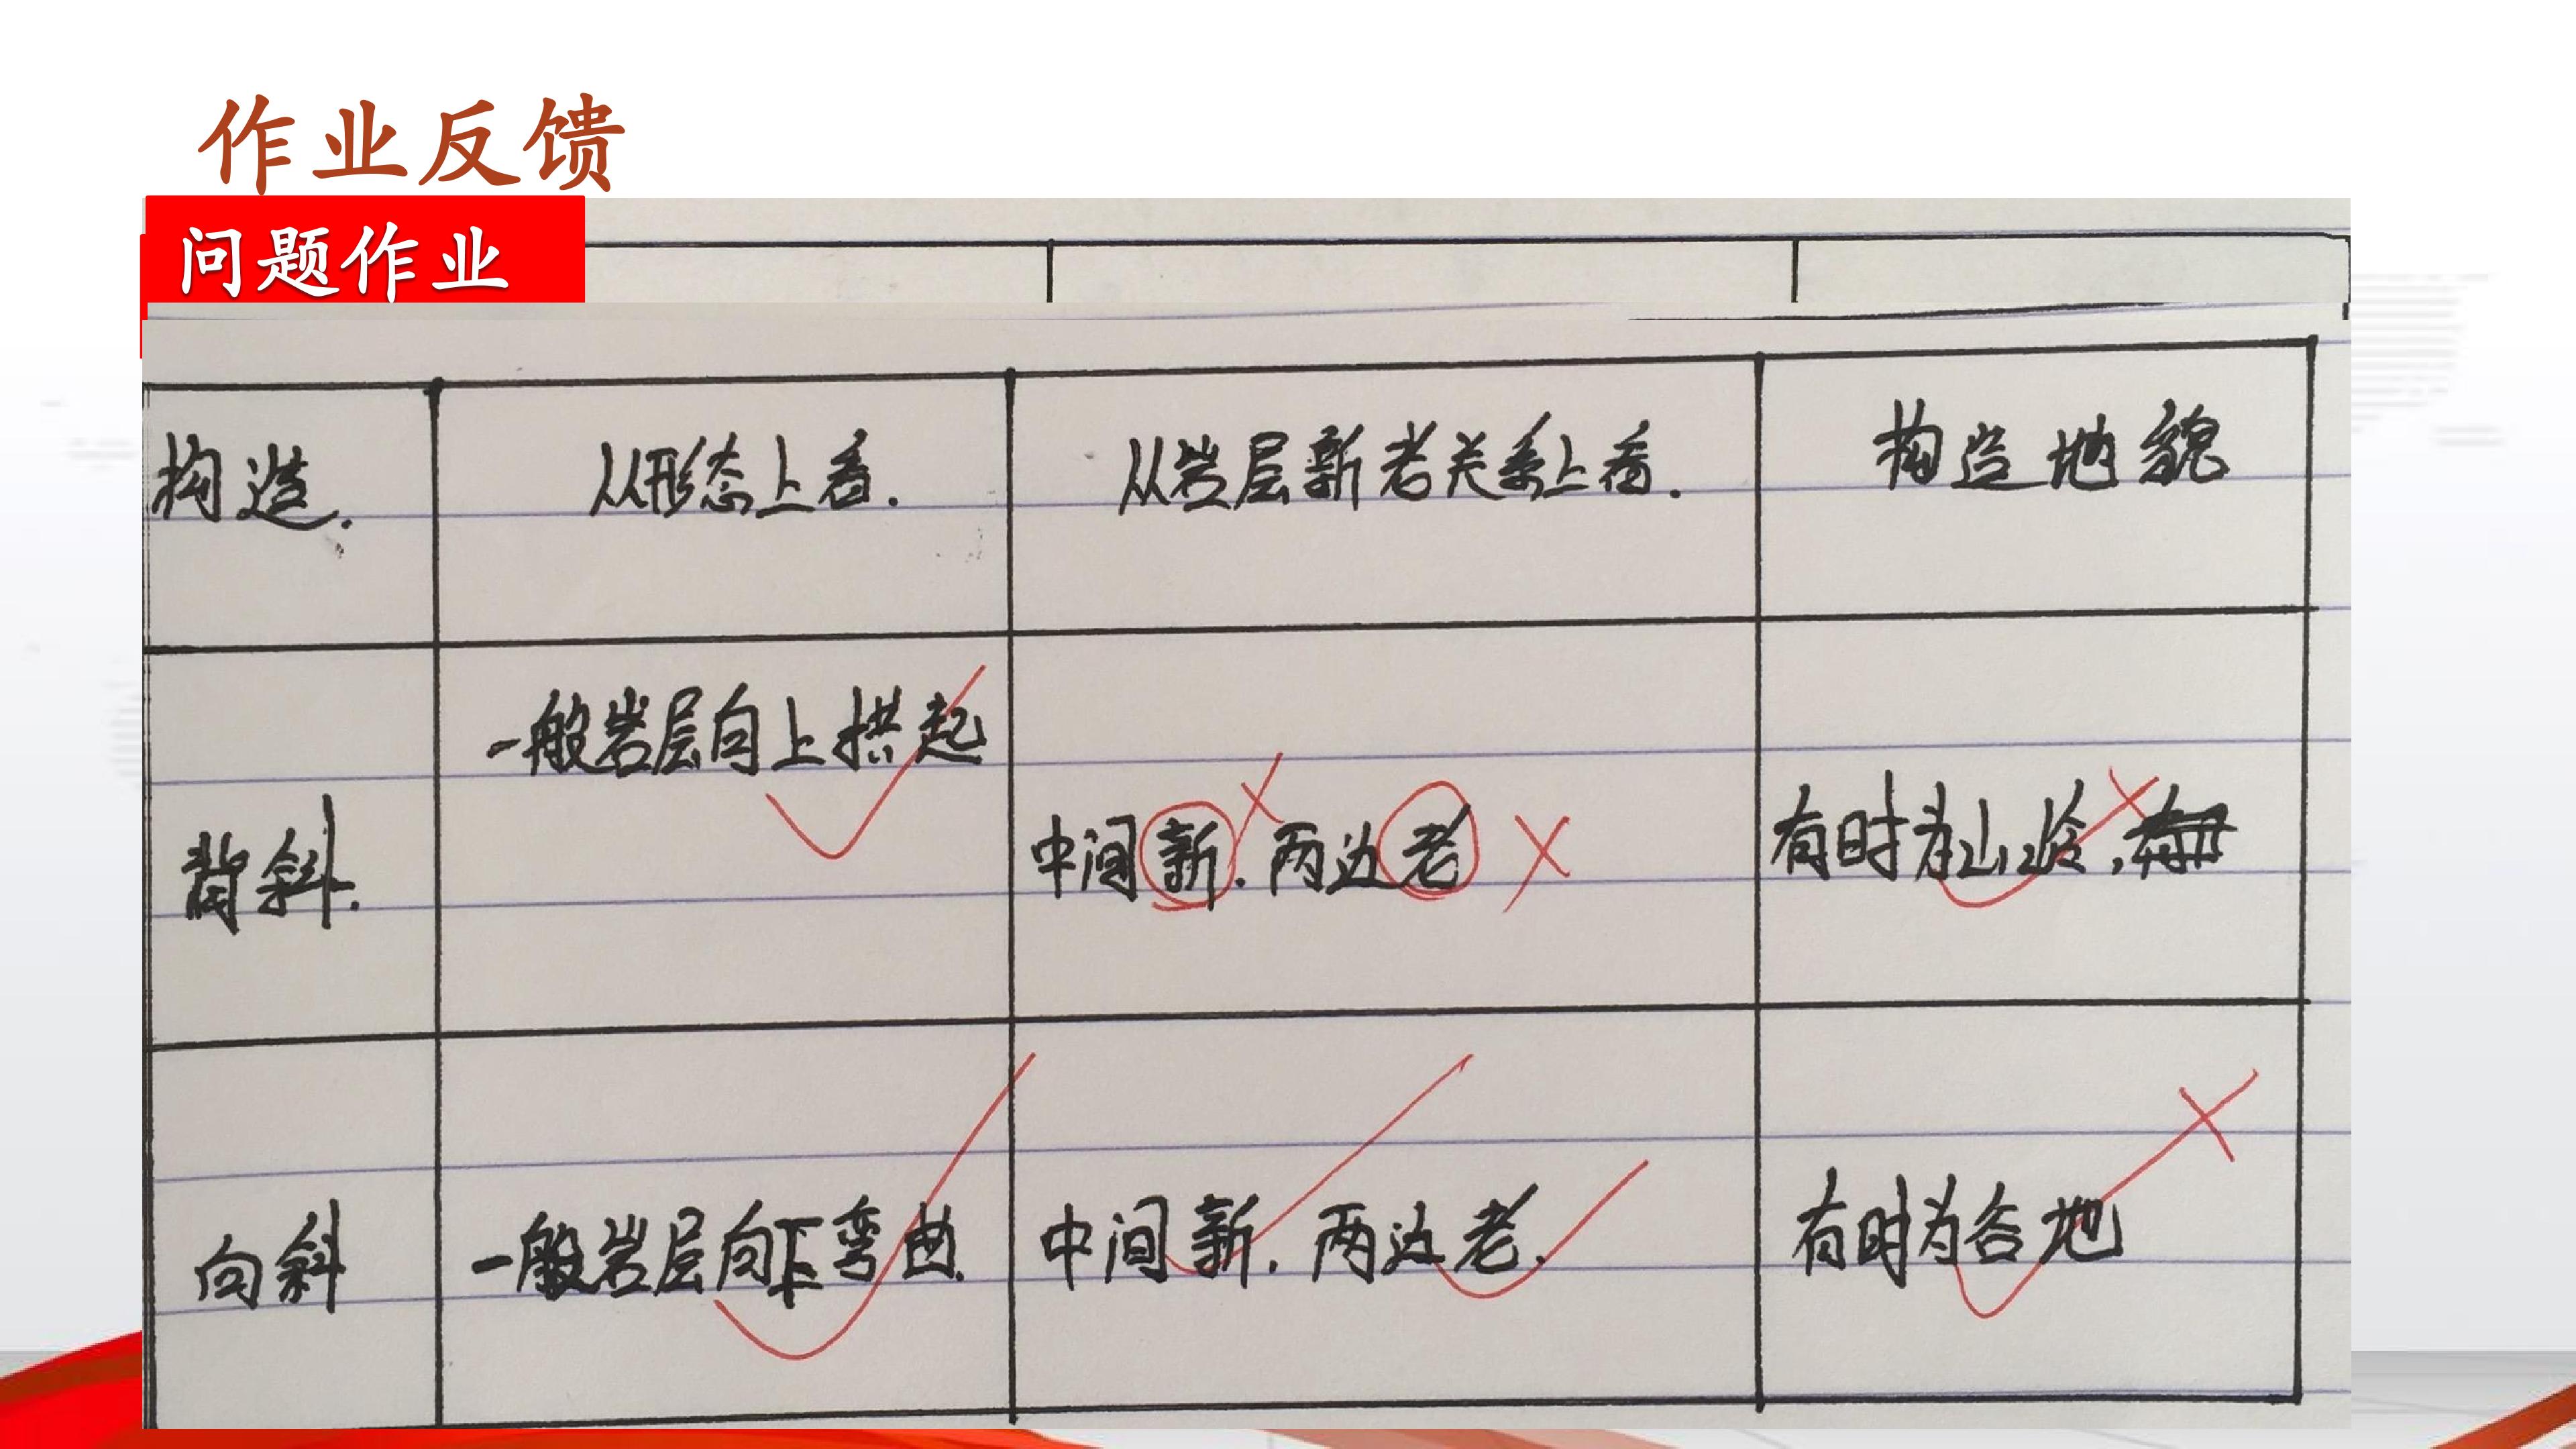 作业反馈
问题作业
构造.
从形态上看.
从岩层新老关系上看.
构造地貌
背斜.
一般岩层向上拱起
中间新.两边老
有时为山岭,
向斜
一般岩层向下弯曲.
中间新.两边老.
有时为谷地